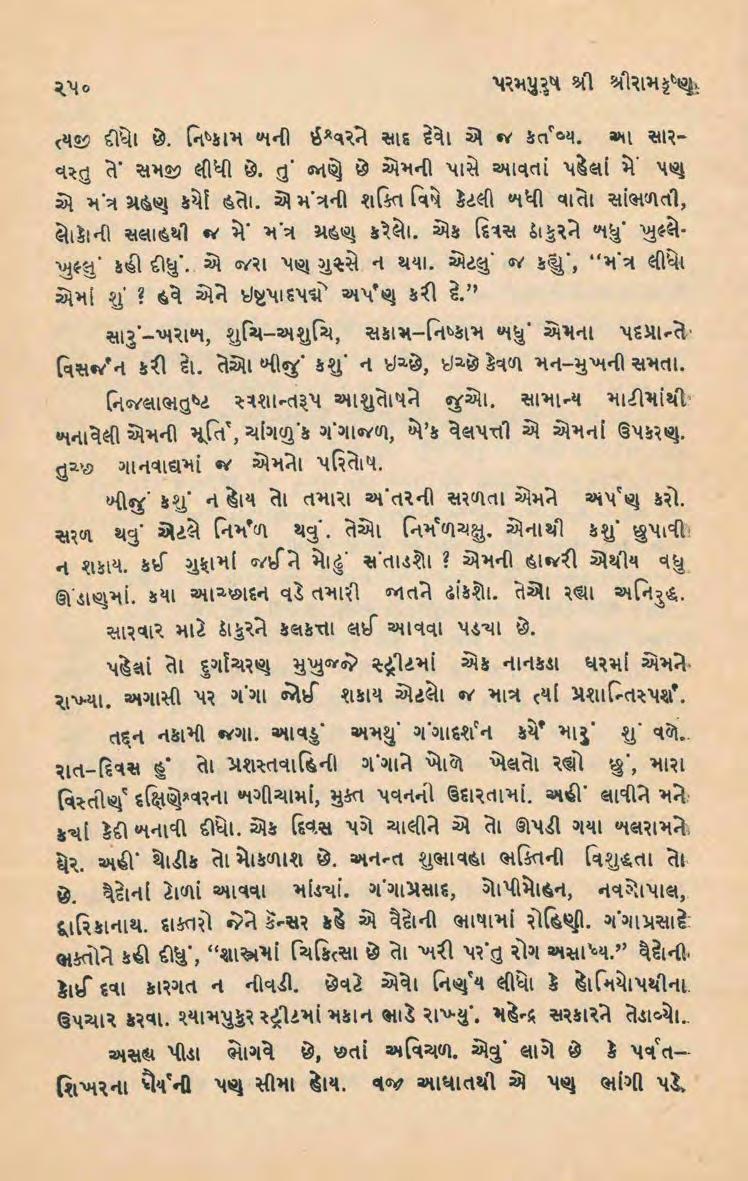 ૨૫૦ પરમપુરુષ શ્રી શ્રીરામકૃષ્ણ
ત્યજી દીધો છે. નિષ્કામ બની ઈશ્વરને સાદ દેવો એ જ કર્તવ્ય. આ સાર-
વસ્તુ તેં સમજી લીધી છે. તું જાણે છે એમની પાસે આવતાં પહેલાં મેં પણ
એ મંત્ર ગ્રહણ કર્યો હતો. એ મંત્રની શક્તિ વિષે કેટલી બધી વાતો સાંભળતી,
લોકોની સલાહથી જ મેં મંત્ર ગ્રહણ કરેલો. એક દિવસ ઠાકુરને બધું ખુલ્લે-
ખુલ્લું કહી દીધું. એ જરા પણ ગુસ્સે ન થયા. એટલું જ કહ્યું, “મંત્ર લીધો
એમાં શું ? હવે એને ઇષ્ટપાદપદ્મે અર્પણ કરી દે.”
સારું-ખરાબ, શુચિ-અશુચિ, સકામ-નિષ્કામ બધું એમના પદપ્રાન્તે
વિસર્જન કરી દો. તેઓ બીજું કશું ન ઇચ્છે, ઇચ્છે કેવળ મન-મુખની સમતા.
નિજલાભતુષ્ટ સ્વશાન્તરૂપ આશુતોષને જુઓ. સામાન્ય માટીમાંથી
બનાવેલી એમની મૂર્તિ, ચાંગળુંક ગંગાજળ, બે'ક વેલપત્તી એ એમનાં ઉપકરણ.
તુચ્છ ગાનવાદ્યમાં જ એમનો પરિતોષ.
બીજું કશું ન હોય તો તમારા અંતરની સરળતા એમને અર્પણ કરો.
સરળ થવું એટલે નિર્મળ થવું. તેઓ નિર્મળચક્ષુ. એનાથી કશું છુપાવી
ન શકાય. કઈ ગુફામાં જઈને મોઢું સંતાડશો ? એમની હાજરી એથીય વધુ
ઊંડાણમાં. કયા આચ્છાદન વડે તમારી જાતને ઢાંકશો. તેઓ રહ્યા અનિરુદ્ધ.
સારવાર માટે ઠાકુરને કલકત્તા લઈ આવવા પડ્યા છે.
પહેલાં તો દુર્ગાચરણ મુખુજ્જે સ્ટ્રીટમાં એક નાનકડા ઘરમાં એમને
રાખ્યા. અગાસી પર ગંગા જોઈ શકાય એટલો જ માત્ર ત્યાં પ્રશાન્તિસ્પર્શ.
તદ્દન નકામી જગા. આવડું અમથું ગંગાદર્શન કર્યે મારું શું વળે.
રાત-દિવસ હું તો પ્રશસ્તવાહિની ગંગાને ખોળે ખેલતો રહ્યો છું, મારા
વિસ્તીર્ણ દક્ષિણેશ્વરના બગીચામાં, મુક્ત પવનની ઉદારતામાં. અહીં લાવીને મને
ક્યાં કેદી બનાવી દીધો. એક દિવસ પગે ચાલીને એ તો ઊપડી ગયા બલરામને
ઘેર. અહીં થોડીક તો મોકળાશ છે. અનન્ત શુભાવહા ભક્તિની વિશુદ્ધતા તો
છે. વૈદોનાં ટોળાં આવવા માંડ્યાં. ગંગાપ્રસાદ, ગોપીમોહન, નવગોપાલ,
દ્વારિકાનાથ. દાક્તરો જેને કૅન્સર કહે એ વૈદોની ભાષામાં રોહિણી. ગંગાપ્રસાદે
ભક્તોને કહી દીધું, “શાસ્ત્રમાં ચિકિત્સા છે તો ખરી પરંતુ રોગ અસાધ્ય.” વૈદોની
કોઈ દવા કારગત ન નીવડી. છેવટે એવો નિર્ણય લીધો કે હોમિયોપથીના
ઉપચાર કરવા. શ્યામપુકુર સ્ટ્રીટમાં મકાન ભાડે રાખ્યું. મહેન્દ્ર સરકારને તેડાવ્યો.
અસહ્ય પીડા ભોગવે છે, છતાં અવિચળ. એવું લાગે છે કે પર્વત-
શિખરના ધૈર્યની પણ સીમા હોય. વજ્ર આઘાતથી એ પણ ભાંગી પડે.